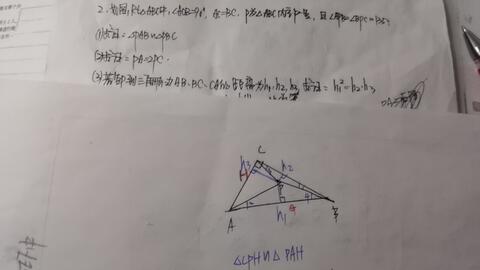 2. 如图, Rt△ABC中, ∠ACB=90°, AC=BC, P为△ABC内部一点, 且∠APB=∠BPC=135°
(1)求证=△PAB∽△PBC
(2)求证=PA=2PC
(3)若点P到三角形的边AB、BC、CA的距离为h₁、h₂、h₃ 求证= h₁²=h₂·h₃
C
h₃
h₂
P
A
h₁
B
△CPH∽△PAH